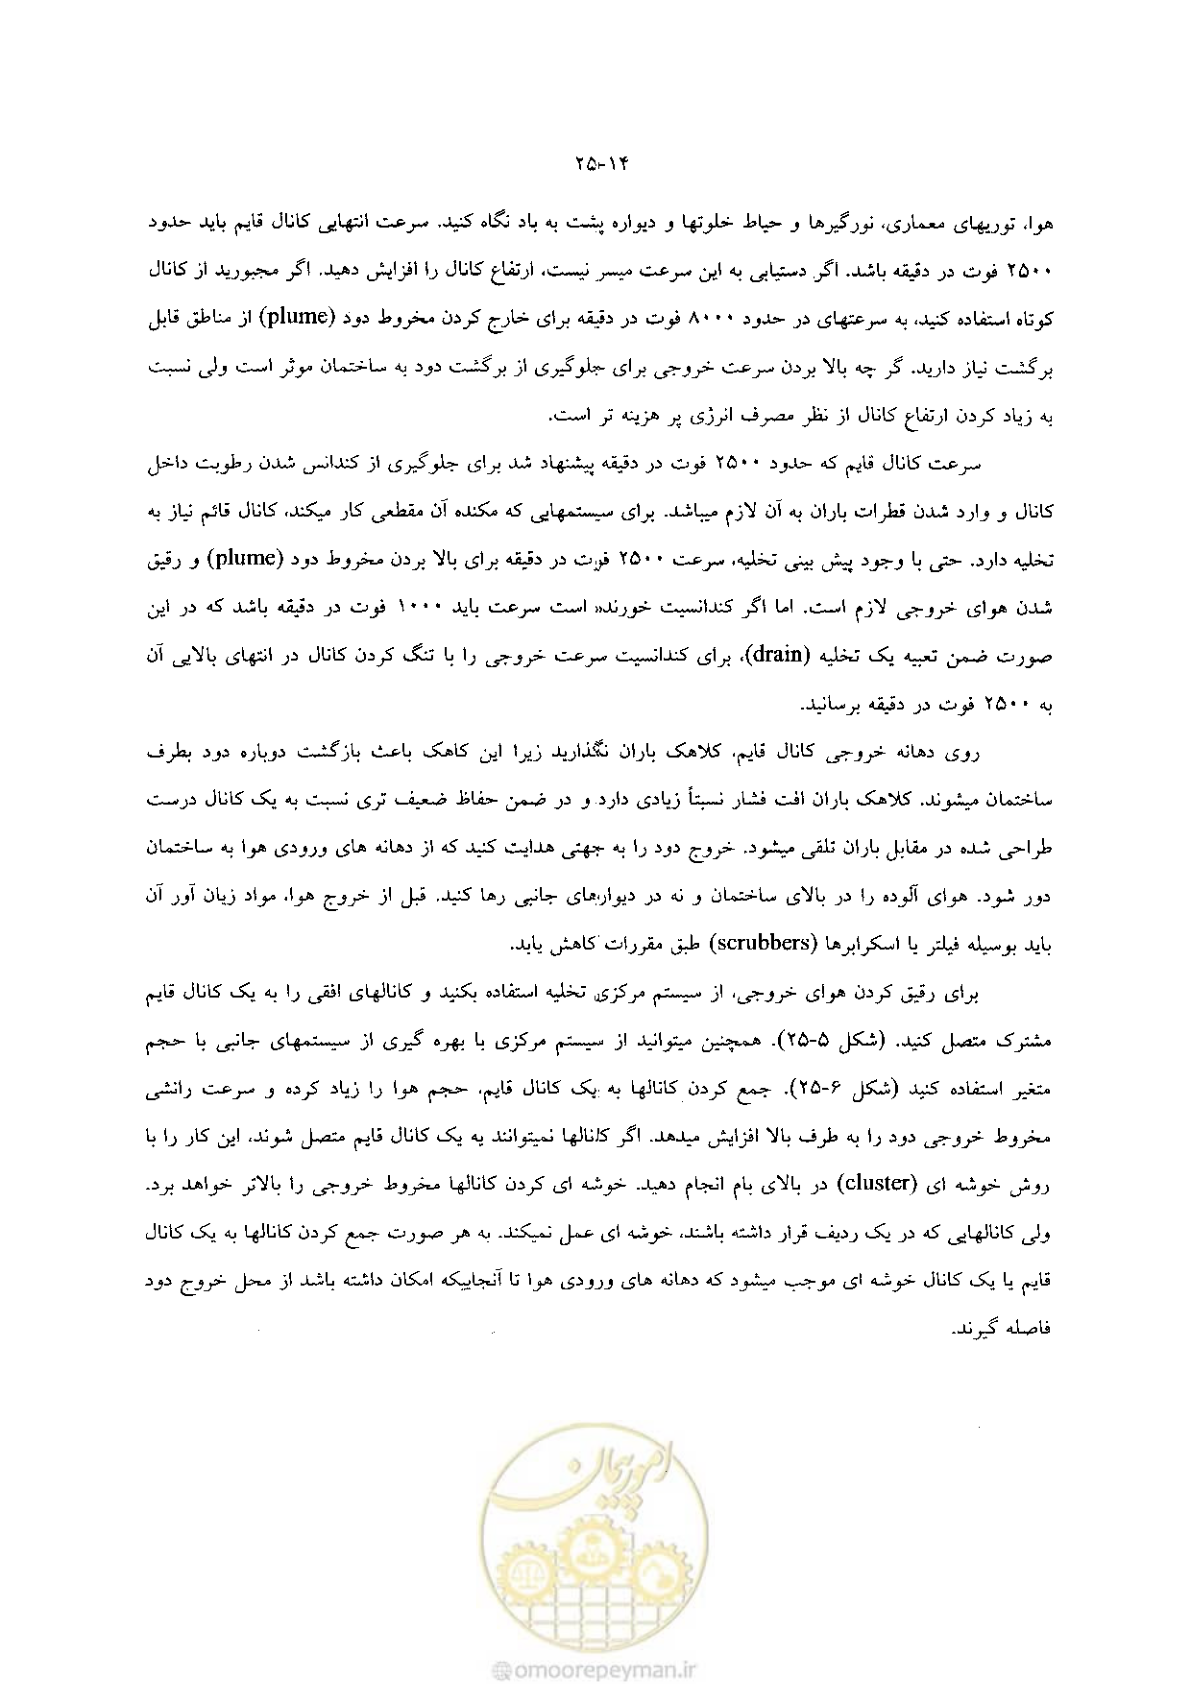 ۲۵-۱۴
هوا، توریهای معماری، نورگیرها و حیاط خلوتها و دیواره پشت به باد نگاه کنید. سرعت انتهایی کانال قایم باید حدود
۲۵۰۰ فوت در دقیقه باشد. اگر دستیابی به این سرعت میسر نیست، ارتفاع کانال را افزایش دهید. اگر مجبورید از کانال
کوتاه استفاده کنید، به سرعتهای در حدود ۸۰۰۰ فوت در دقیقه برای خارج کردن مخروط دود (plume) از مناطق قابل
برگشت نیاز دارید. گر چه بالا بردن سرعت خروجی برای جلوگیری از برگشت دود به ساختمان موثر است ولی نسبت
به زیاد کردن ارتفاع کانال از نظر مصرف انرژی پر هزینه تر است.
سرعت کانال قایم که حدود ۲۵۰۰ فوت در دقیقه پیشنهاد شد برای جلوگیری از کندانس شدن رطوبت داخل
کانال و وارد شدن قطرات باران به آن لازم میباشد. برای سیستمهایی که مکنده آن مقطعی کار میکند، کانال قائم نیاز به
تخلیه دارد. حتی با وجود پیش بینی تخلیه، سرعت ۲۵۰۰ فوت در دقیقه برای بالا بردن مخروط دود (plume) و رقیق
شدن هوای خروجی لازم است. اما اگر کندانسیت خورنده است سرعت باید ۱۰۰۰ فوت در دقیقه باشد که در این
صورت ضمن تعبیه یک تخلیه (drain)، برای کندانسیت سرعت خروجی را با تنگ کردن کانال در انتهای بالایی آن
به ۲۵۰۰ فوت در دقیقه برسانید.
روی دهانه خروجی کانال قایم، کلاهک باران نگذارید زیرا این کاهک باعث بازگشت دوباره دود بطرف
ساختمان میشوند. کلاهک باران افت فشار نسبتأ زیادی دارد و در ضمن حفاظ ضعیف تری نسبت به یک کانال درست
طراحی شده در مقابل باران تلقی میشود. خروج دود را به جهتی هدایت کنید که از دهانه های ورودی هوا به ساختمان
دور شود. هوای آلوده را در بالای ساختمان و نه در دیوارهای جانبی رها کنید. قبل از خروج هوا، مواد زیان آور آن
باید بوسیله فیلتر یا اسکرابرها (scrubbers) طبق مقررات کاهش یابد.
برای رقیق کردن هوای خروجی، از سیستم مرکزی تخلیه استفاده بکنید و کانالهای افقی را به یک کانال قایم
مشترک متصل کنید. (شکل ۵-۲۵). همچنین میتوانید از سیستم مرکزی با بهره گیری از سیستمهای جانبی با حجم
متغیر استفاده کنید (شکل ۶-۲۵). جمع کردن کانالها به یک کانال قایم، حجم هوا را زیاد کرده و سرعت رانشی
مخروط خروجی دود را به طرف بالا افزایش میدهد. اگر کانالها نمیتوانند به یک کانال قایم متصل شوند، این کار را با
روش خوشه ای (cluster) در بالای بام انجام دهید. خوشه ای کردن کانالها مخروط خروجی را بالاتر خواهد برد.
ولی کانالهایی که در یک ردیف قرار داشته باشند، خوشه ای عمل نمیکند. به هر صورت جمع کردن کانالها به یک کانال
قایم یا یک کانال خوشه ای موجب میشود که دهانه های ورودی هوا تا آنجاییکه امکان داشته باشد از محل خروج دود
فاصله گیرند.
امور پیمان
@omoorepeyman.ir